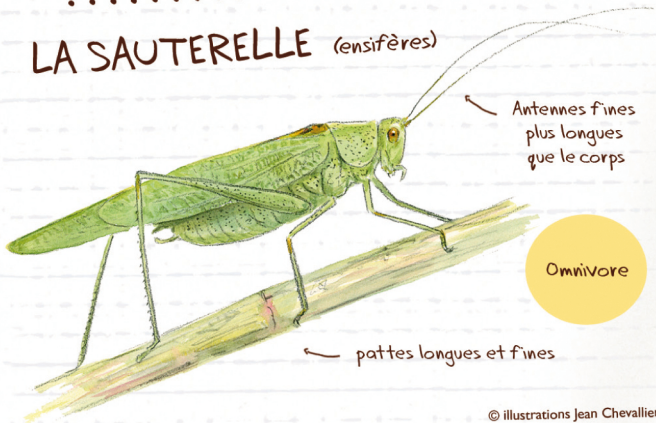 LA SAUTERELLE (ensifères)
Antennes fines
plus longues
que le corps
Omnivore
pattes longues et fines
© illustrations Jean Chevallier